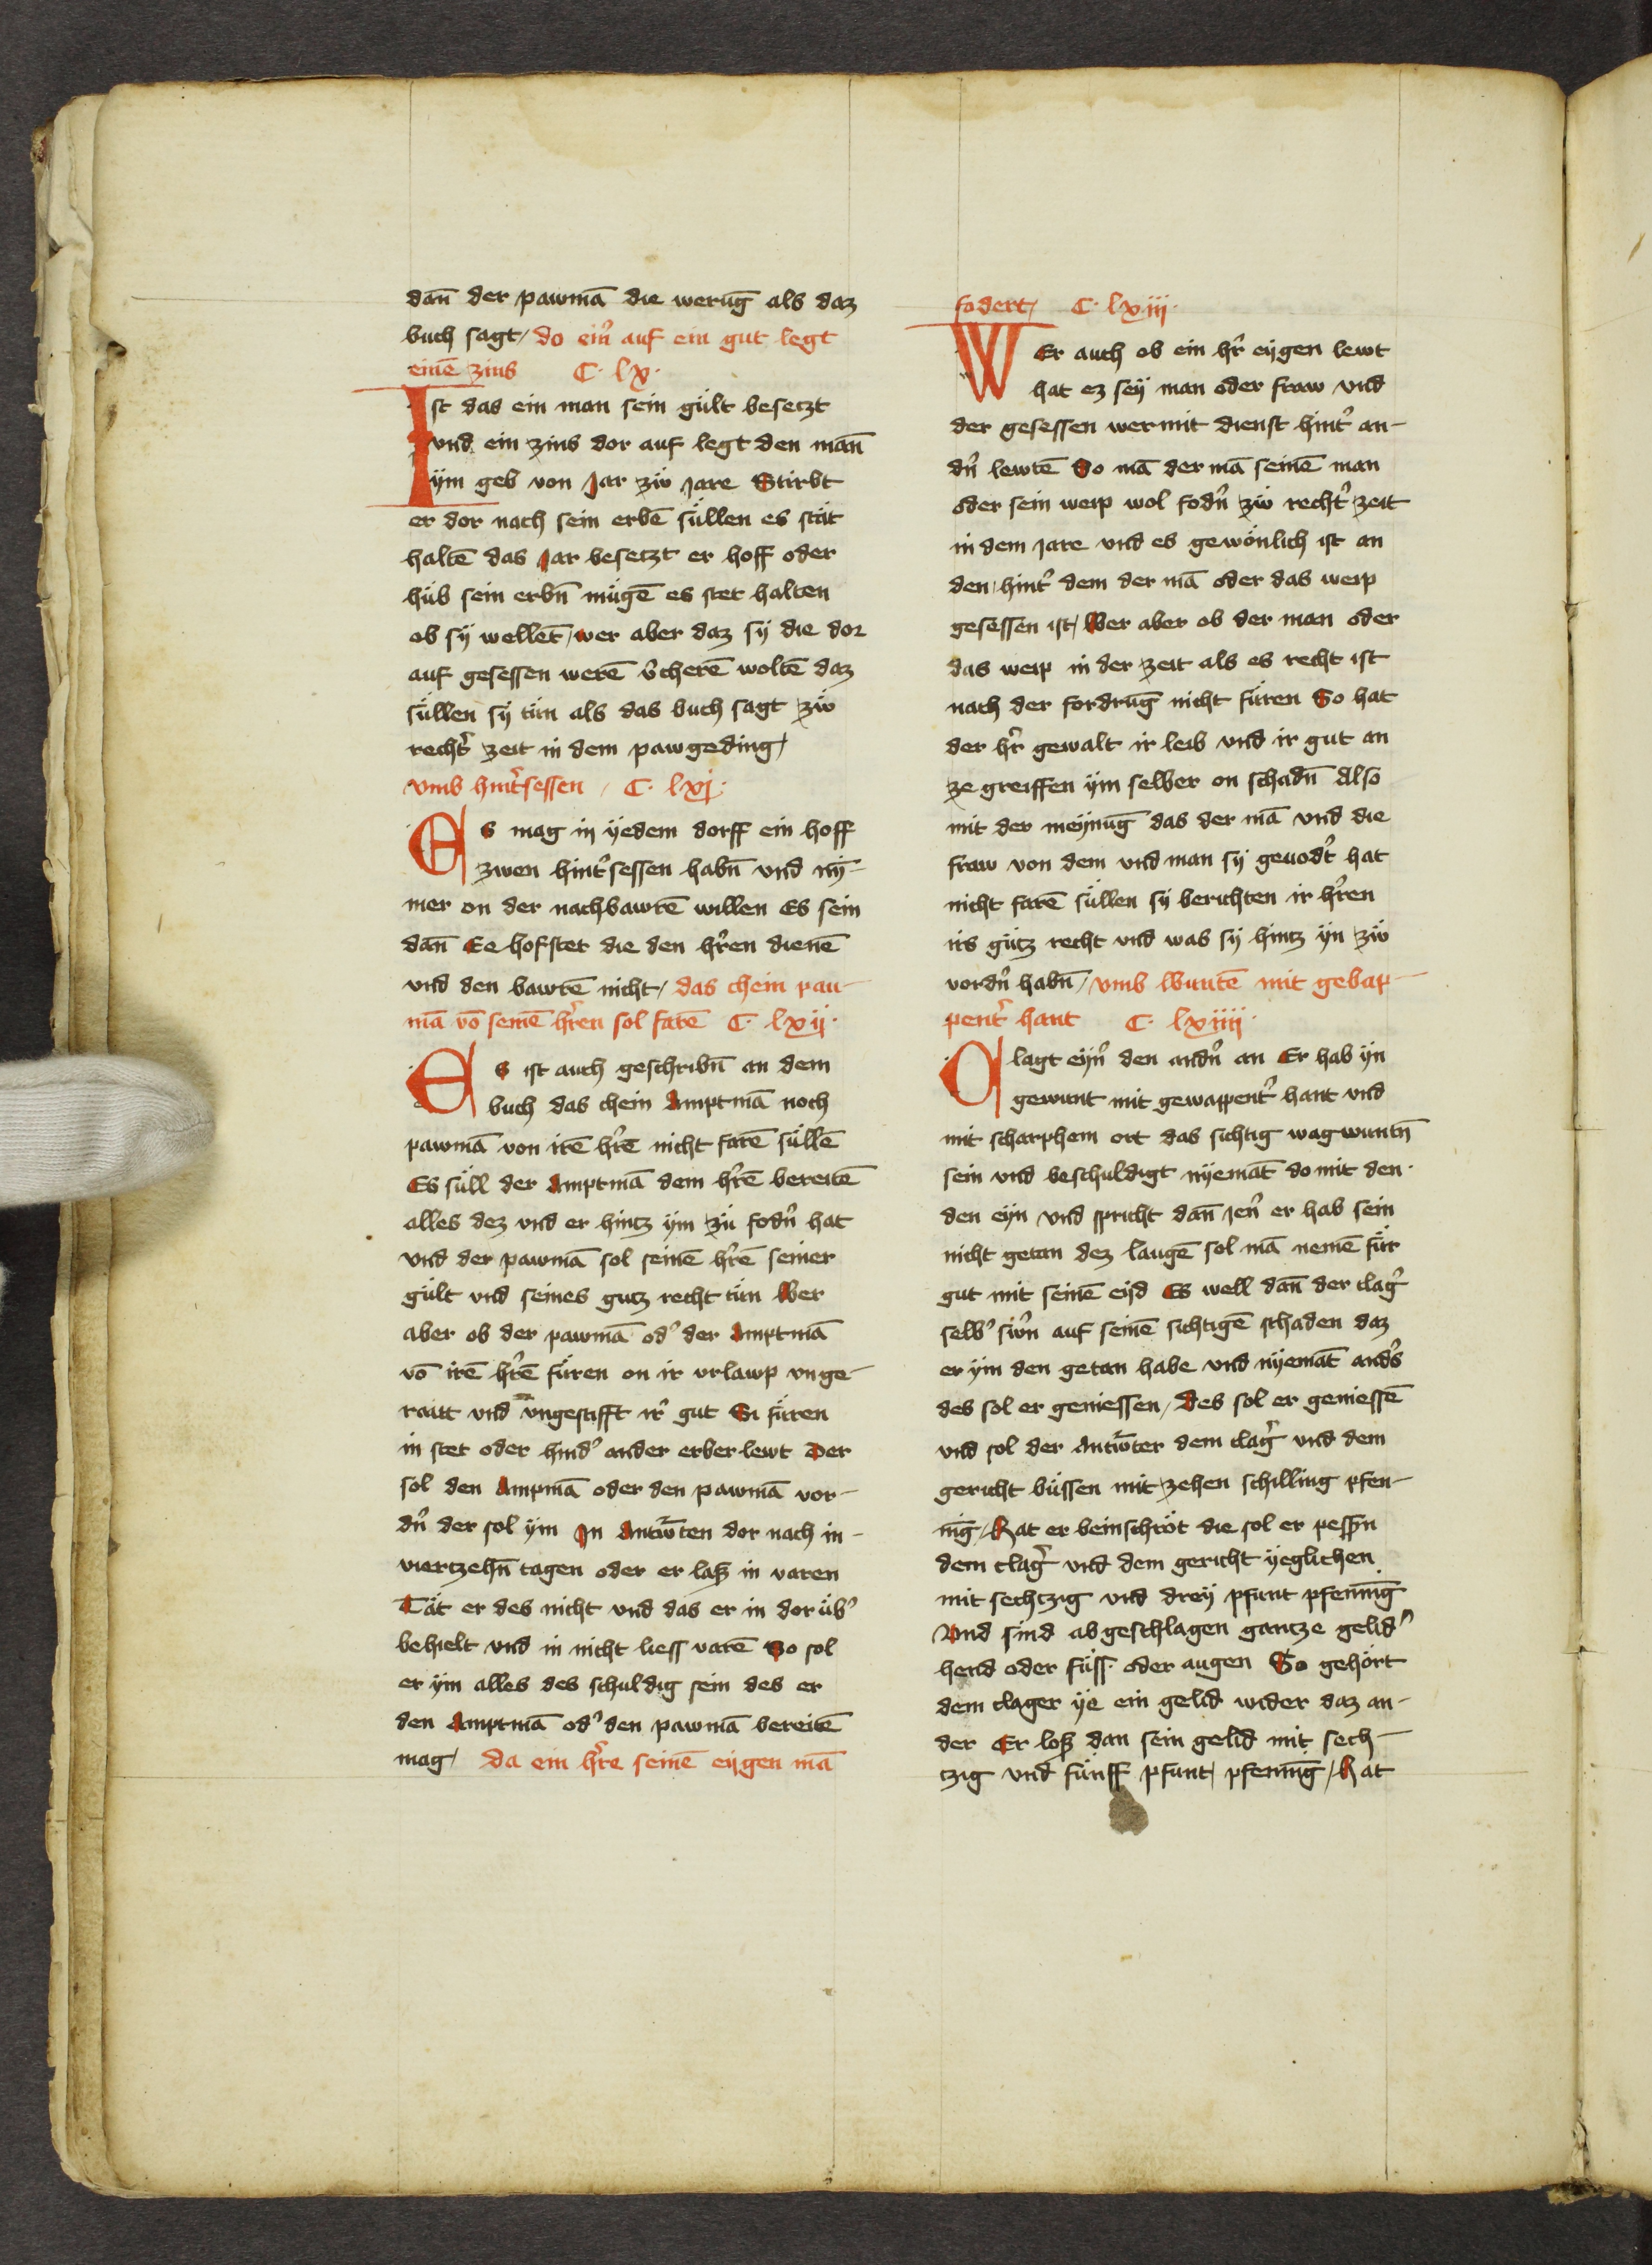 dan̄ der pawmā die werūg als daz
buch sagt / do ein̓ auf ein gut legt
einē zins C · lx ·
Ist das ein man sein gült beseczt
vnd ein zins dor auf legt den man̄
ÿm geb von Jar zw̎ Jare Stirbt
er dor nach sein erbē süllen es stät
haltē das Jar beseczt er hoff oder
hüb sein erbn̄ mügē es stet halten
ob sÿ wellēt / wer aber daz sÿ die dor
auf gesessen werē v̓cherē woltē daz
süllen sÿ tün als das buch sagt zw̎
recht̓ zeit in dem pawgeding /
vmb hint̓sessen / C · lxj ·
Es mag in ÿedem dorff ein hoff
zwen hint̓sessen habn̄ vnd nÿ-
mer on der nachbawrē willen Es sein
dan̄ Ee hofstet die den hr̓en dienē
vnd den bawrē nicht / das chein pau-
mā vō seinē hr̓en sol farē C · lxij ·
Es ist auch geschribn̄ an dem
buch das chein Amptmā noch
pawmā von irē hr̓ē nicht farē süllē
Es süll der Amptmā dem hr̓ē bereitē
alles dez vnd er hincz ÿm zü fodn̓ hat
vnd der pawmā sol seinē hr̓ē seiner
gült vnd seines gutz recht tün Wer
aber ob der pawmā od̓ der Amptmā
vō irē hr̓ē füren on ir vrlawp vnge-
raitt vnd vngestifft ir̓ gut Si füren
in stet oder hind̓ ander erber lewt Der
sol den Ampmā oder den pawmā vor-
dn̓ der sol ÿm In Antw̄ten dor nach in-
viertzehn̄ tagen oder er laß in varen
Tät er des nicht vnd das er in dor üb̓
behielt vnd in nicht liess varē So sol
er ÿm alles des schuldig sein des er
den Amptmā od̓ den pawmā bereitē
mag / da ein hr̓re seinē eÿgen mā
fodert / C · lxiij ·
WEr auch ob ein hr̓ eÿgen lewt
hat ez seÿ man oder fraw vnd
der gesessen wer mit dienst hint̓ an-
dn̓ lewtē So mā der mā seinē man
oder sein weip wol fodn̓ zw̎ recht̓ zeit
in dem Jare vnd es gewönlich ist an
den / hint̓ dem der mā oder das weip
gesessen ist / Wer aber ob der man oder
das weip in der zeit als es recht ist
nach der fordrūg nicht füren So hat
der hr̓ gewalt ir leib vnd ir gut an
ze greiffen ÿm selber on schadn̄ Also
mit der meÿnūg das der mā vnd die
fraw von dem vnd man sÿ geuodt̓ hat
nicht farē süllen sÿ berichten ir hr̓en
irs gütz recht vnd was sÿ hincz ÿn zw̎
vordn̓ habn̄ / vmb Wuntē mit gebap-
pent̓ hant C · lxiiij ·
Clagt eÿn̓ den andn̓ an Er hab ÿn
gewunt mit gewappent̓ hant vnd
mit scharphem ort das sichtig wagwuntn̄
sein vnd beschuldigt nÿemāt do mit den ·
den eÿn vnd spricht dan̄ Jen̓ er hab sein
nicht getan dez laugē sol mā nemē für
gut mit seinē eÿd Es well dan̄ der clag̓
selb̓ sw̓n auf seinē sichtigē schaden daz
er ÿm den getan habe vnd nÿemāt and̓s
des sol er geniessen / Des sol er geniessē
vnd sol der Antw̄ter dem clag̓ vnd dem
gericht büssen mit zehen schilling pfen-
niḡ / Hat er beinschröt die sol er pessn̄
dem clag̓ vnd dem gericht ÿeglichen
mit sechtzig vnd dreÿ pfunt pfenniḡ
Vnd sind abgeschlagen gantze gelid̓
hend oder füss · oder augen So gehört
dem clager ÿe ein gelid wider daz an-
der Er loß dan sein gelid mit sech-
tzig vnd fünff pfunt / pfenniḡ / Hat